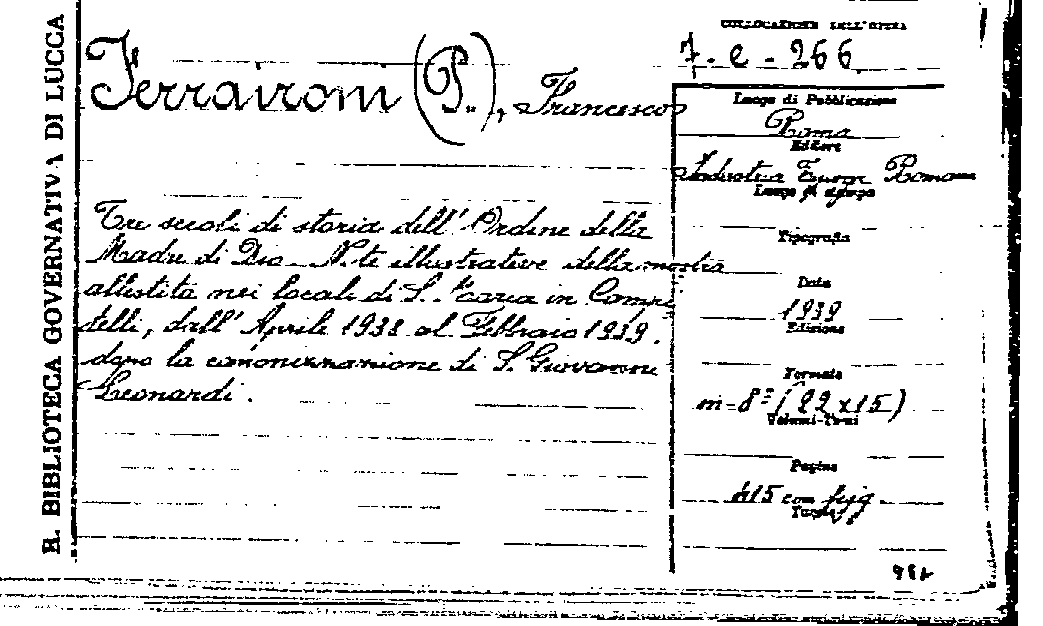 R. BIBLIOTECA GOVERNATIVA DI LUCCA
COLLOCAZIONE DELL'OPERA
7-e-266
Ferraironi (P.), Francesco
Tre secoli di storia dell'Ordine della
Madre di Dio - Note illustrative della mostra
allestita nei locali di S. Maria in Campi
telli, dall'Aprile 1938 al Febbraio 1939.
dopo la canonizzazione di S. Giovanni
Leonardi.
Luogo di Pubblicazione
Roma
Editore
Industria Romana
Luogo di stampa
Tipografia
Data
1939
Edizione
Formato
in-8° (22x15)
Volumi-Tomi
Pagine
415 con figg.
Tavole